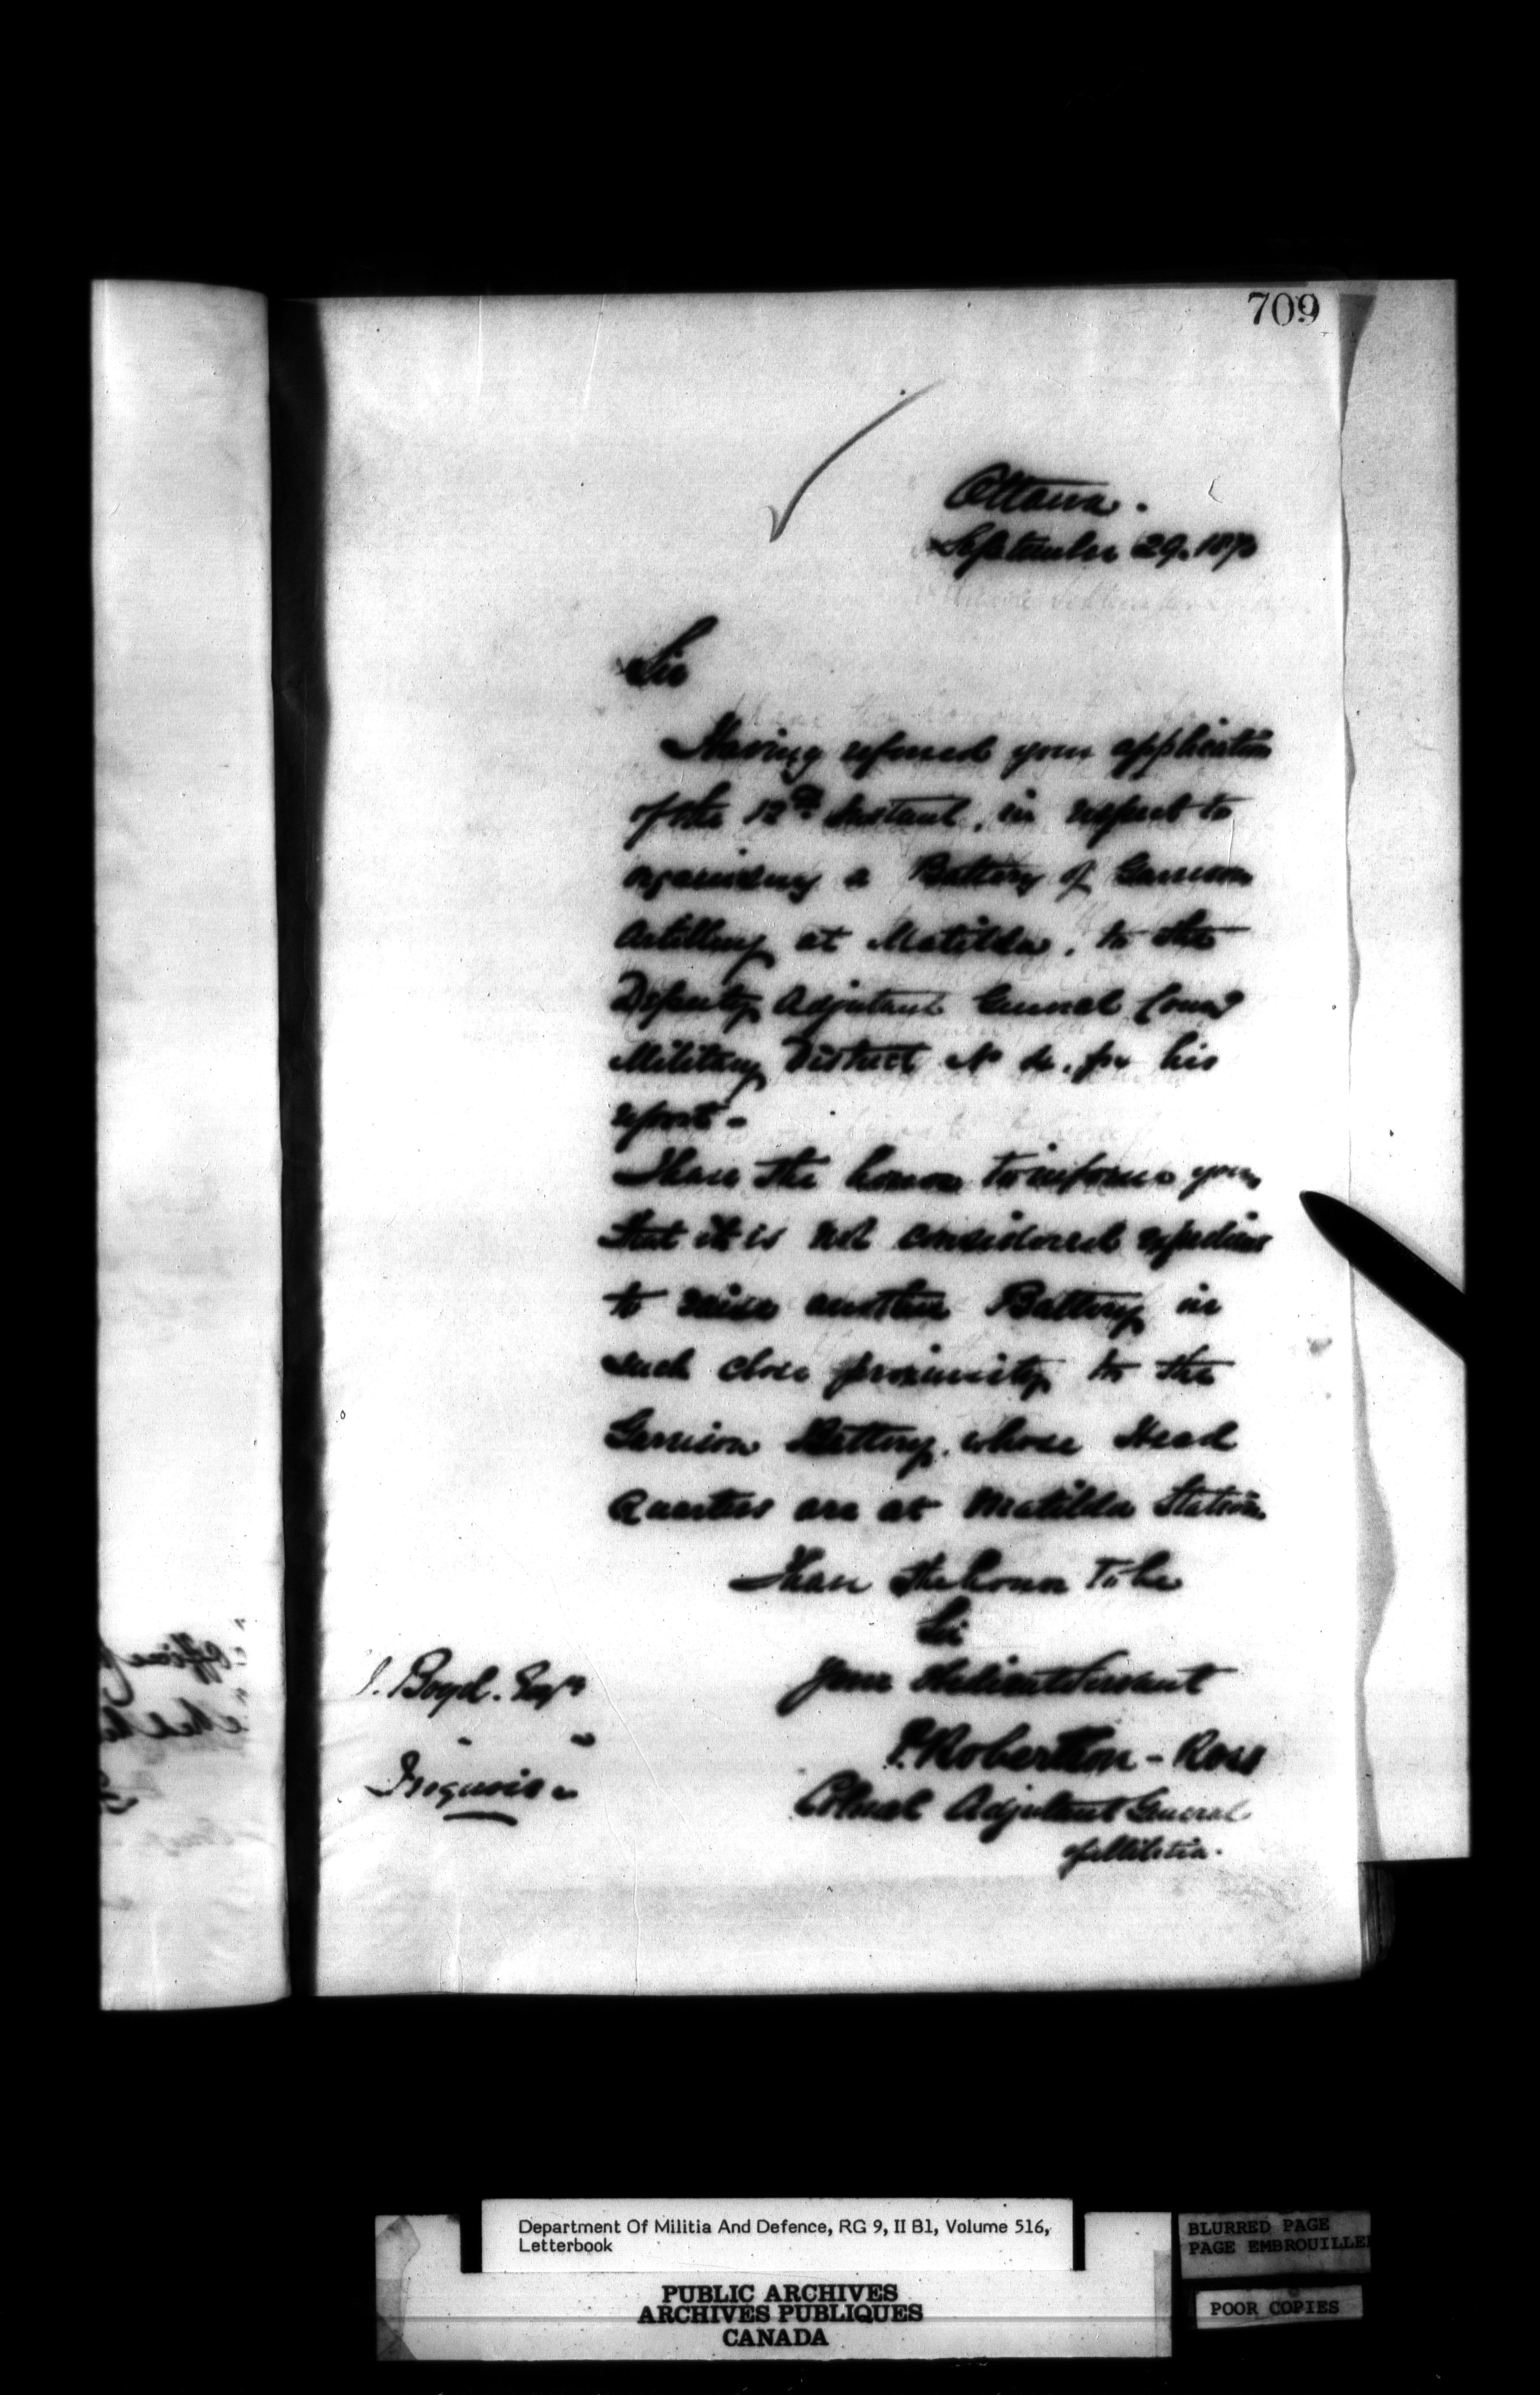 709
Ottawa.
September 29. 1870
Sir
Having referred your application
of the 12th Instant, in respect to
organizing a Battery of Garrison
Artillery at Matilda, to the
Deputy Adjutant General Comdg
Military District No 4. for his
report -
I have the honor to inform you
that it is not considered expedient
to raise another Battery in
such close proximity to the
Garrison Battery, whose Head
Quarters are at Matilda Station.
I have the honor to be
Sir
Your Obedient Servant
P. Robertson - Ross
Colonel Adjutant General
of Militia.
J. Boyd. Esqre
Iroquois
Department Of Militia And Defence, RG 9, II B1, Volume 516,
Letterbook
PUBLIC ARCHIVES
ARCHIVES PUBLIQUES
CANADA
BLURRED PAGE
PAGE EMBROUILLEE
POOR COPIES